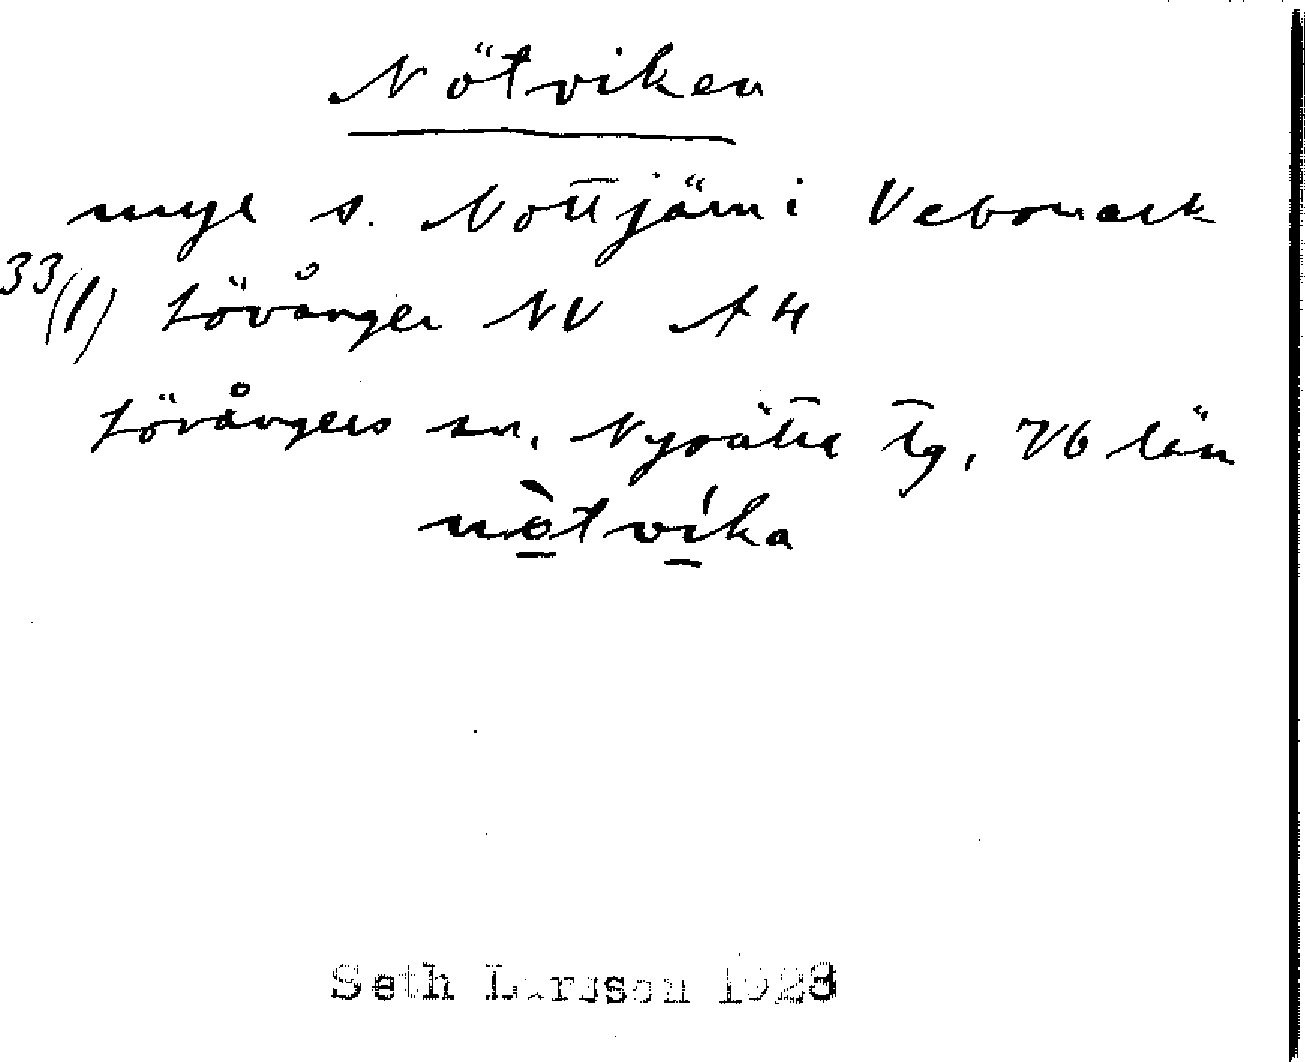 Nötviken
myr s. Nottjärn i Vebomark
33 (1) Lövånger NV A4
Lövångers sn, Nysätra tg, Vb län
nòtvíka
Seth Larsson 1928